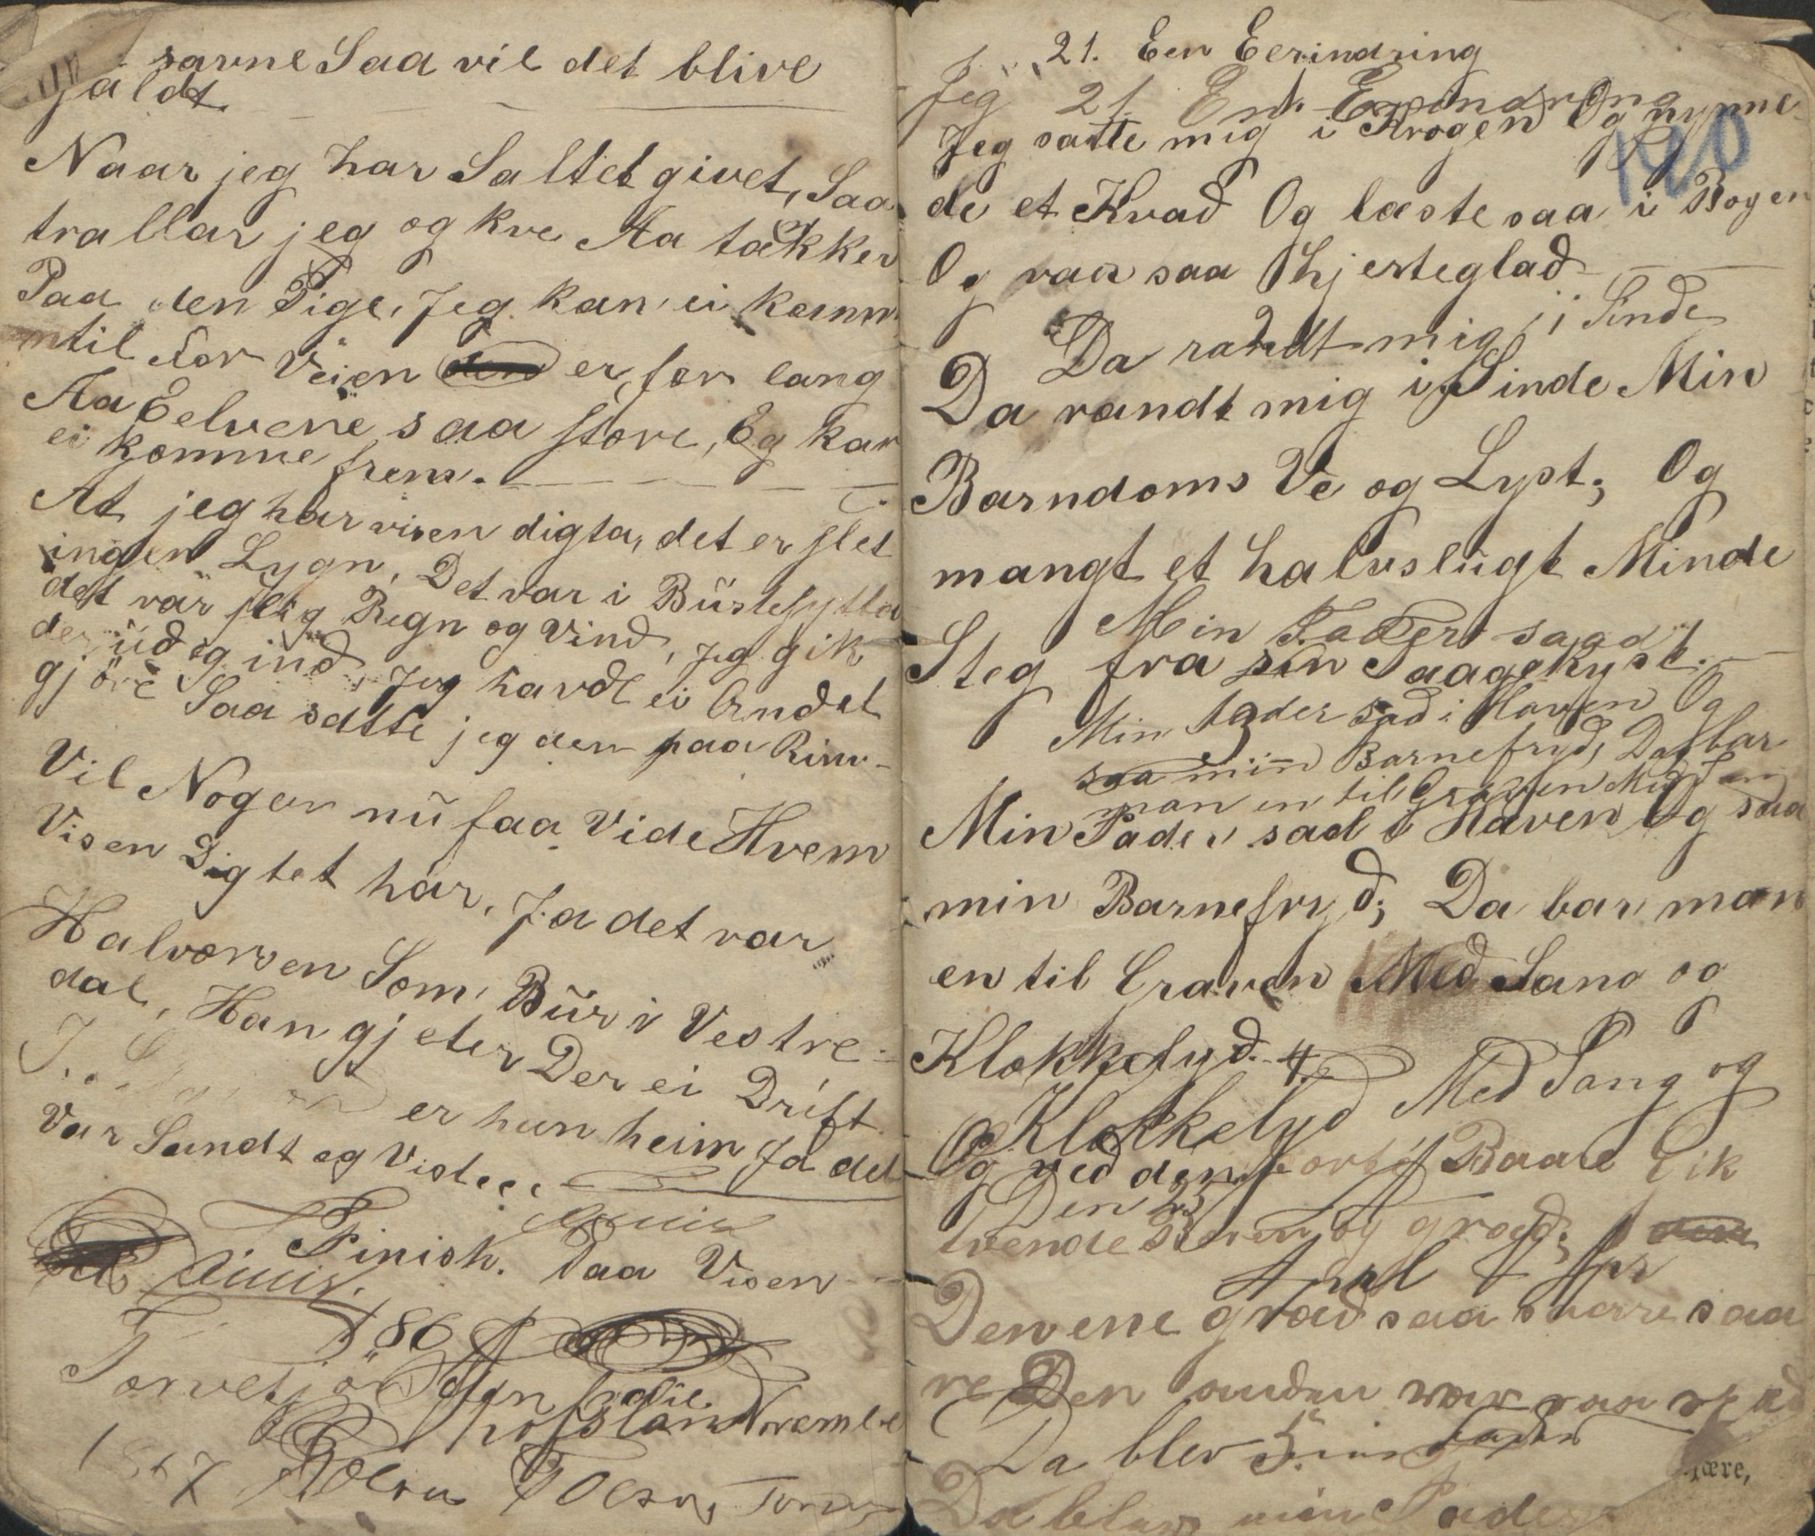 savne Saa vil det blive
galdt.
Naar jeg har Saltet givet, Saa
trallar jeg og kve Aa tækker
Paa den Pige, Jeg kan ei komm
til for Veien den er for lang
Aa Eelvene saa store, Eg kan
ei komme frem.
At jeg har visen digta, det er slet
ingen Lygn, Det var i
det var slig Regn og Vind, jeg gik
der ud og ind, Jeg havde ei Andet
gjöre Saa satte jeg den paa Rim
Vil Nogen nu faa Vide Hvem
Visen Digtet har, Ja det var
Halvorsen Som Buer i Vestre
dal, Han gjeter Der ei Drift
er han heim Ja det
Var Sandt og Vist
Finish. Paa Visen
Finis.
186
Novembe
1867 Tolsen
21. Een Eerindring
Jeg 21. En Erindring
Jeg satte mig i Krogen Og nynne
120
de et Kvad Og læste saa i Bogen
Og var saa hjerteglad
Da randt mig i Sinde
Da randt mig i Sinde Min
Barndoms Ve og Lyst; Og
mangt et halvslugt Minde
Min Fader saad
Steg fra sin Taagekyst.
Min fader sad i Haven Og
saa min Barnefryd, Da bar
man en til Graven Med San
Min Fader sad i Haven Og saa
min Barnefryd; Da bar man
en til Graven Med Sang og
Klokkelyd. 4
Klokkelyd Med Sang og
Og ved den sorte Baare Gik
Den 23
tvende Søren og græd;
April
Den ene græd saa svare saa
re Den anden var saa
Da blev min fader
Da blev min Fader
ære,